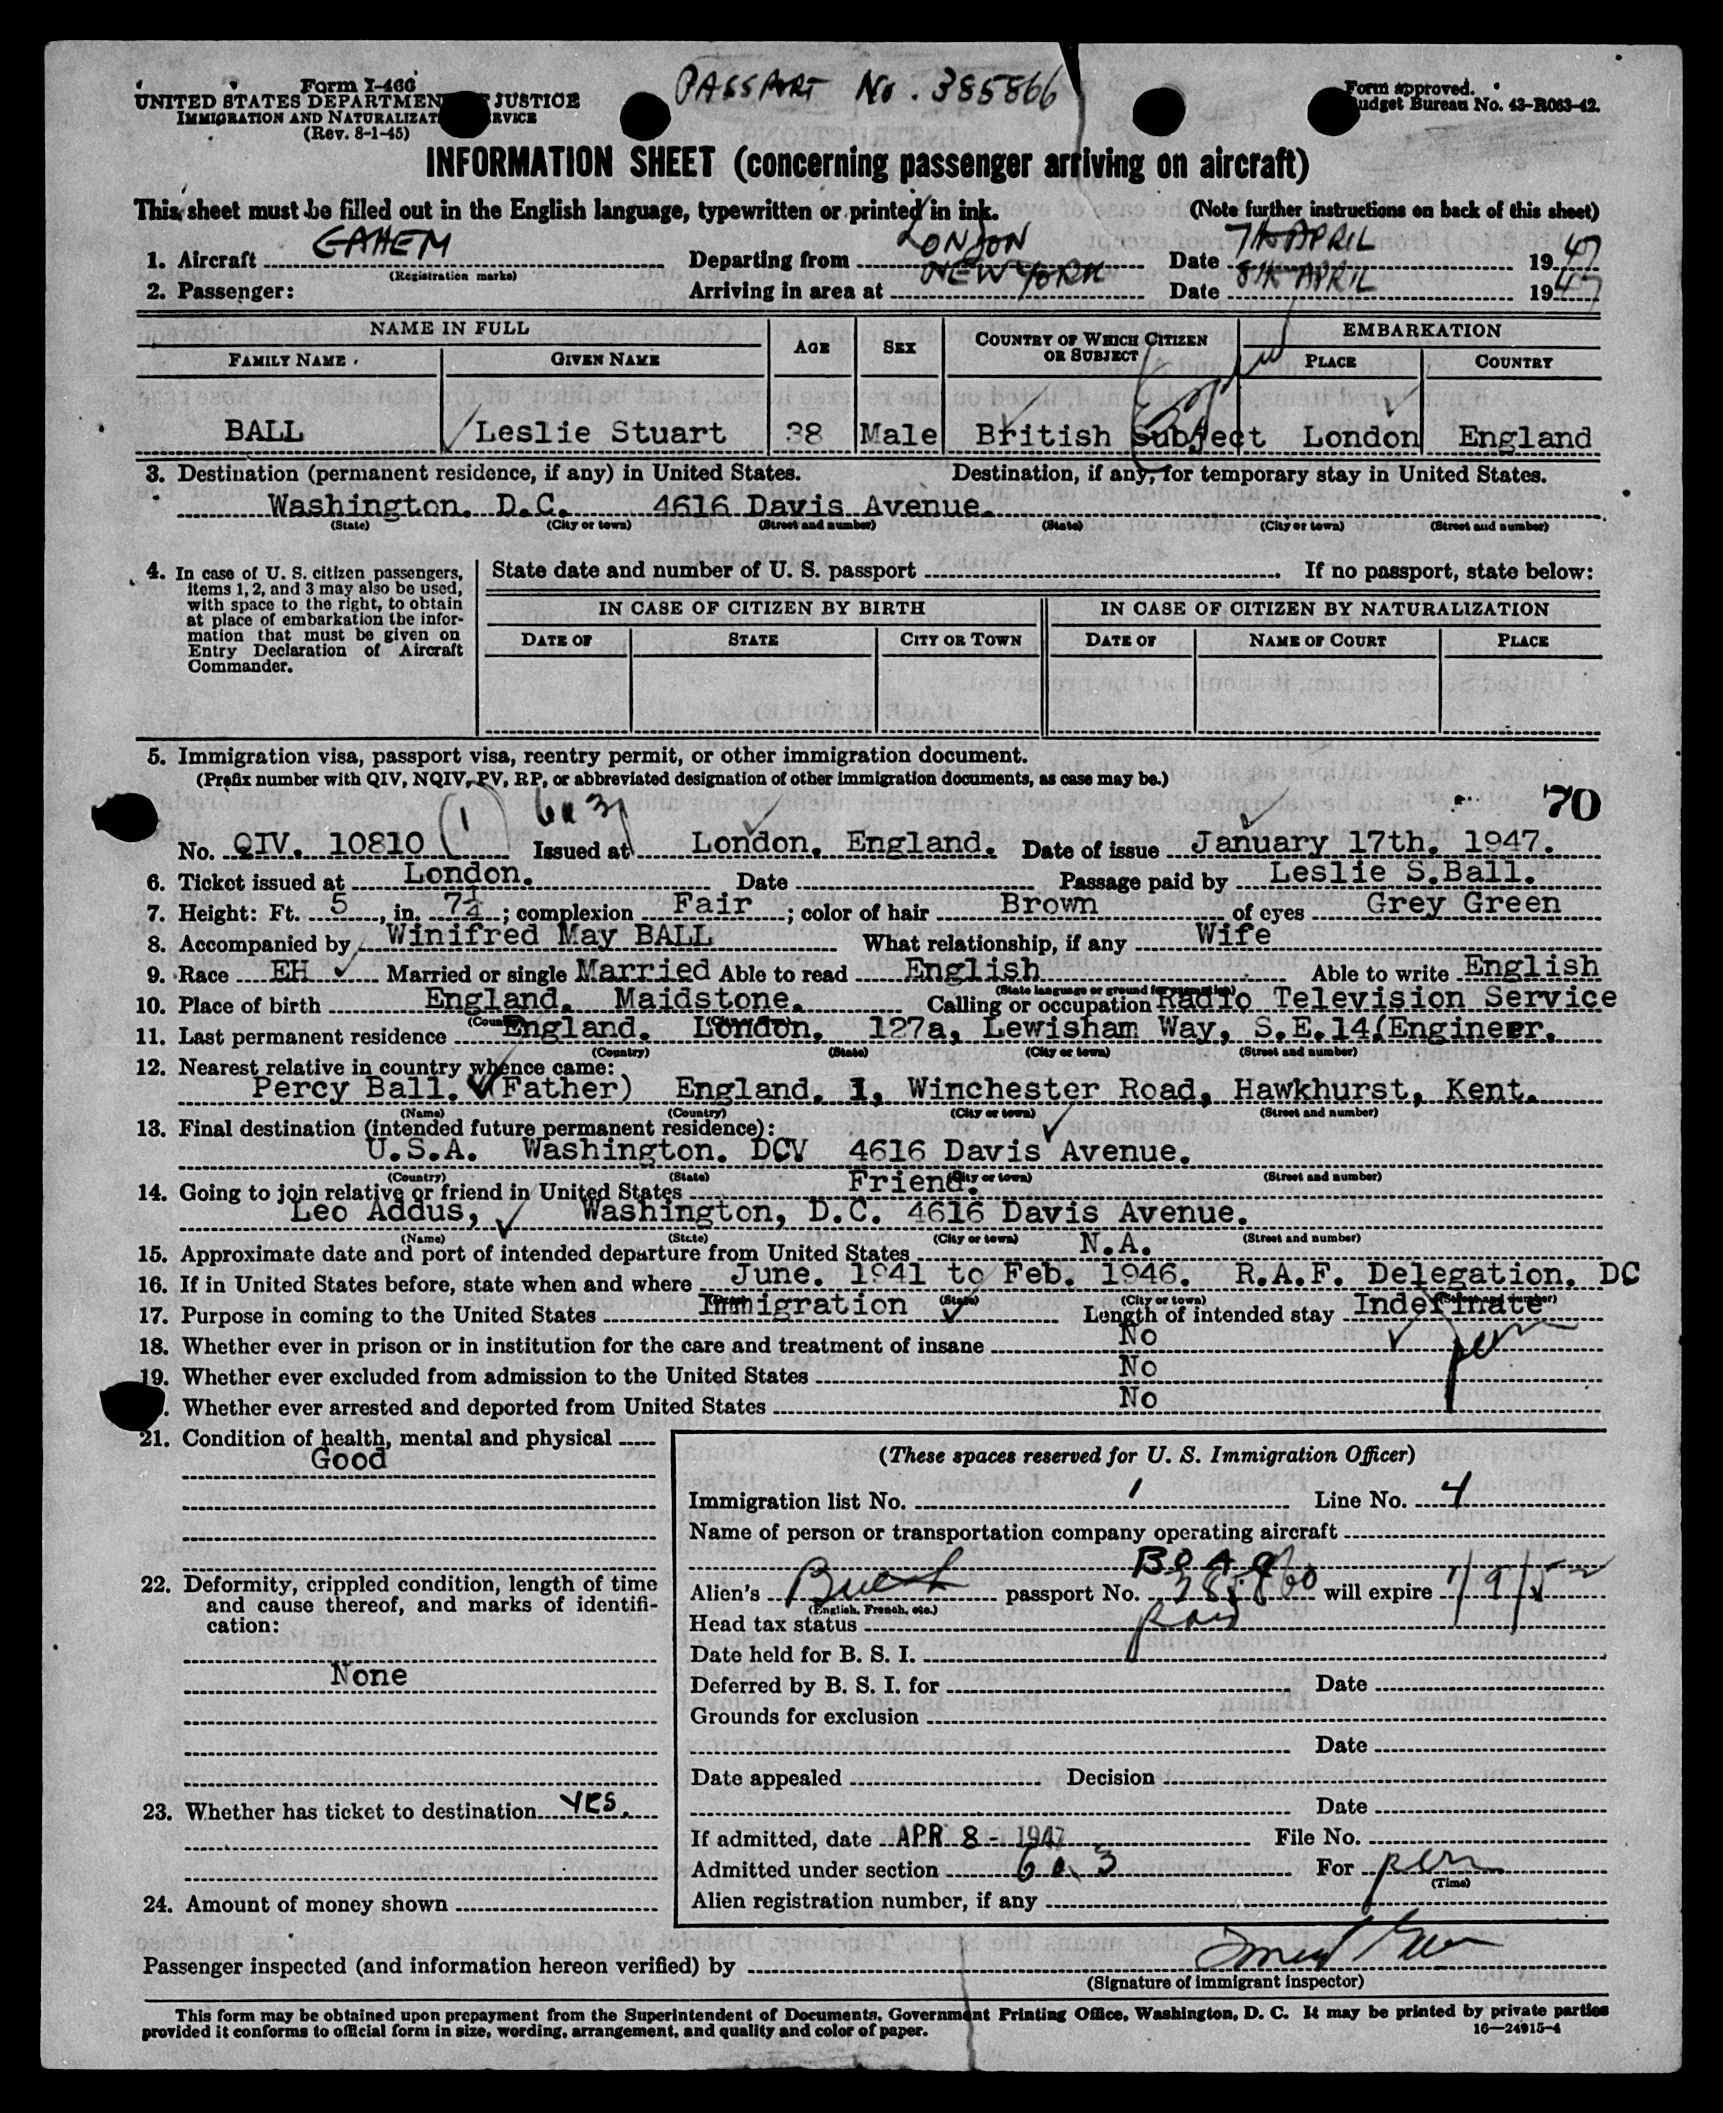 Form I-466
UNITED STATES DEPARTMENT JUSTICE
IMMIGRATION AND NATURALIZAT RVICE
(Rev. 8-1-45)
PASSPORT No. 385866
Form approved.
udget Bureau No. 43-R063-42.
INFORMATION SHEET (concerning passenger arriving on aircraft)
This sheet must be filled out in the English language, typewritten or printed in ink. (Note further instructions on back of this sheet)
1. Aircraft GAHEM Departing from LONDON Date 7th APRIL 1947
(Registration marks)
2. Passenger: Arriving in area at NEW YORK Date 8th APRIL 1947
NAME IN FULL AGE SEX COUNTRY OF WHICH CITIZEN OR SUBJECT EMBARKATION
FAMILY NAME GIVEN NAME PLACE COUNTRY
BALL Leslie Stuart 38 Male British Subject London England
3. Destination (permanent residence, if any) in United States. Destination, if any, for temporary stay in United States.
Washington. D.C. 4616 Davis Avenue.
(State) (City or town) (Street and number) (State) (City or town) (Street and number)
4. In case of U. S. citizen passengers, items 1, 2, and 3 may also be used, with space to the right, to obtain at place of embarkation the information that must be given on Entry Declaration of Aircraft Commander.
State date and number of U. S. passport If no passport, state below:
IN CASE OF CITIZEN BY BIRTH IN CASE OF CITIZEN BY NATURALIZATION
DATE OF STATE CITY OR TOWN DATE OF NAME OF COURT PLACE
5. Immigration visa, passport visa, reentry permit, or other immigration document.
(Prefix number with QIV, NQIV, PV, RP, or abbreviated designation of other immigration documents, as case may be.)
(1) 6a3 70
No. QIV. 10810 Issued at London. England. Date of issue January 17th. 1947.
6. Ticket issued at London. Date Passage paid by Leslie S.Ball.
7. Height: Ft. 5, in. 7½; complexion Fair; color of hair Brown of eyes Grey Green
8. Accompanied by Winifred May BALL What relationship, if any Wife
9. Race EH Married or single Married Able to read English Able to write English
(State language or ground for exemption)
10. Place of birth England. Maidstone. Calling or occupation Radio Television Service
11. Last permanent residence England. London. 127a, Lewisham Way, S.E.14.(Engineer.
(Country) (State) (City or town) (Street and number)
12. Nearest relative in country whence came:
Percy Ball. (Father) England. 1, Winchester Road, Hawkhurst, Kent.
(Name) (Country) (City or town) (Street and number)
13. Final destination (intended future permanent residence):
U.S.A. Washington. DCV 4616 Davis Avenue.
(Country) (State) (City or town) (Street and number)
14. Going to join relative or friend in United States Friend.
Leo Addus, Washington, D.C. 4616 Davis Avenue.
(Name) (State) (City or town) (Street and number)
15. Approximate date and port of intended departure from United States N.A.
16. If in United States before, state when and where June. 1941 to Feb. 1946. R.A.F. Delegation. DC
(State) (City or town) (Street and number)
17. Purpose in coming to the United States Immigration Length of intended stay Indefinate
perm
18. Whether ever in prison or in institution for the care and treatment of insane No
19. Whether ever excluded from admission to the United States No
. Whether ever arrested and deported from United States No
21. Condition of health, mental and physical
Good
22. Deformity, crippled condition, length of time and cause thereof, and marks of identification:
None
23. Whether has ticket to destination YES.
24. Amount of money shown
(These spaces reserved for U. S. Immigration Officer)
Immigration list No. 1 Line No. 4
Name of person or transportation company operating aircraft
B.O.A.C
Alien's passport No. will expire
(English, French, etc.)
Head tax status Paid
Date held for B. S. I.
Deferred by B. S. I. for Date
Grounds for exclusion
Date
Date appealed Decision
Date
If admitted, date APR 8 - 1947 File No.
Admitted under section 6a3 For per
(Time)
Alien registration number, if any
Passenger inspected (and information hereon verified) by
(Signature of immigrant inspector)
This form may be obtained upon prepayment from the Superintendent of Documents, Government Printing Office, Washington, D. C. It may be printed by private parties
provided it conforms to official form in size, wording, arrangement, and quality and color of paper. 16—24915-4